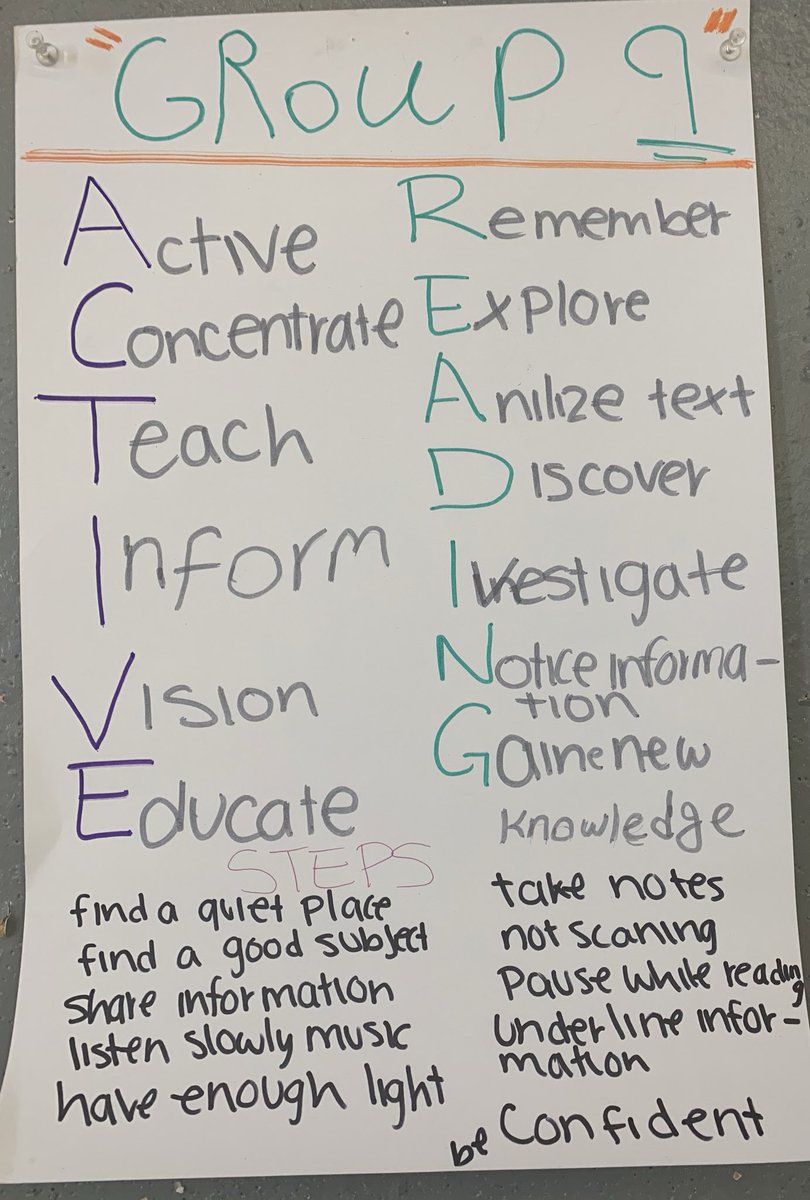 "GROUP 9"
Active
Concentrate
Teach
Inform
Vision
Educate
Remember
Explore
Anilize text
Discover
Investigate
Notice informa-
tion
Gaine new
knowledge
STEPS
find a quiet place
find a good subject
share information
listen slowly music
have enough light
take notes
not scaning
Pause while reading
underline infor-
mation
be Confident